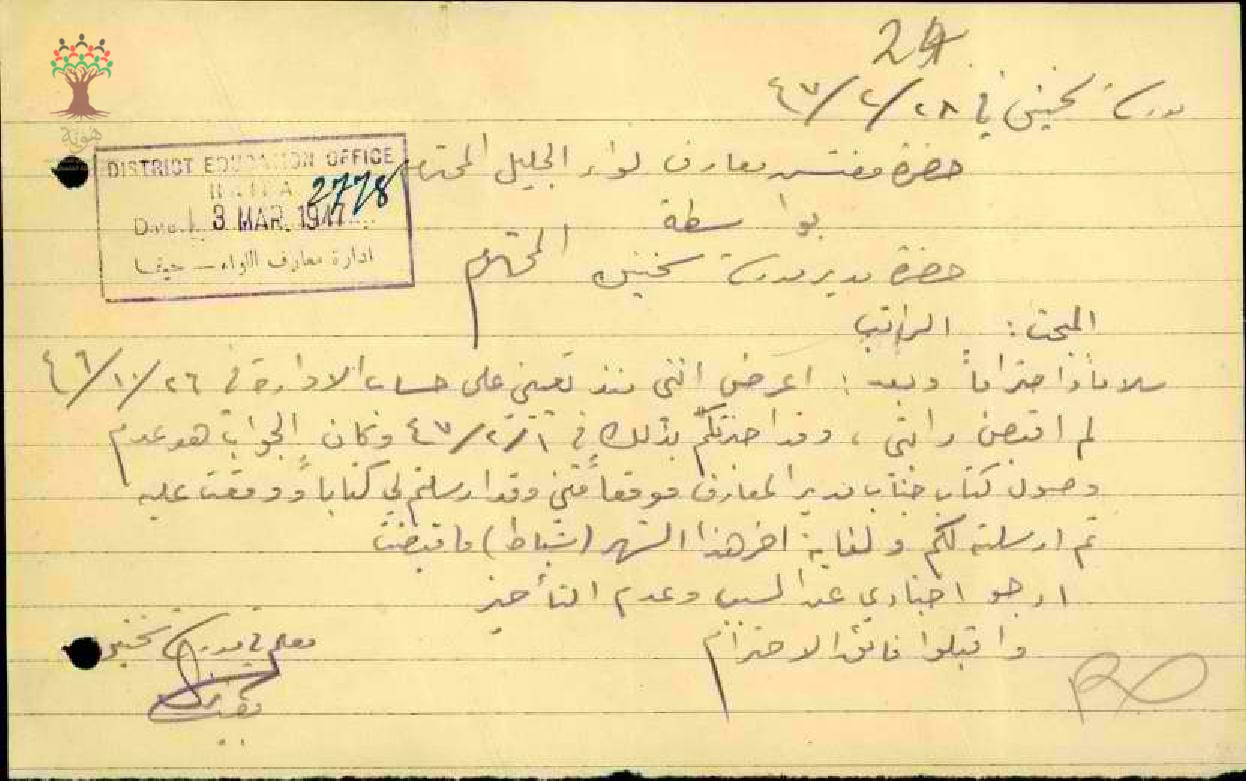 24
مدرسة سخنين في ٢٨/٢/٤٧
حضرة مفتش معارف لواء الجليل المحترم
بواسطة
حضرة مدير مدرسة سخنين المحترم
المبحث: الراتب
سلاماً واحتراماً وبعد: اعرض انني منذ تعييني على حساب الادارة في ٢٦/١٠/٤٦
لم اقبض راتبي، وقد اخبرتكم بذلك في ٦/٢/٤٧ وكان الجواب هو عدم
وصول كتاب جناب مدير المعارف موقعاً مني وقد ارسلتم لي كتاباً ووقعت عليه
ثم ارسلته لكم ولغاية اخر هذا الشهر (شباط) ما قبضت
ارجو اخباري عن السبب وعدم التأخير
واقبلوا فائق الاحترام
معلم في مدرسة سخنين
DISTRICT EDUCATION OFFICE
HAIFA
2778
Date 3 MAR. 1947
ادارة معارف اللواء - حيفا
هوية